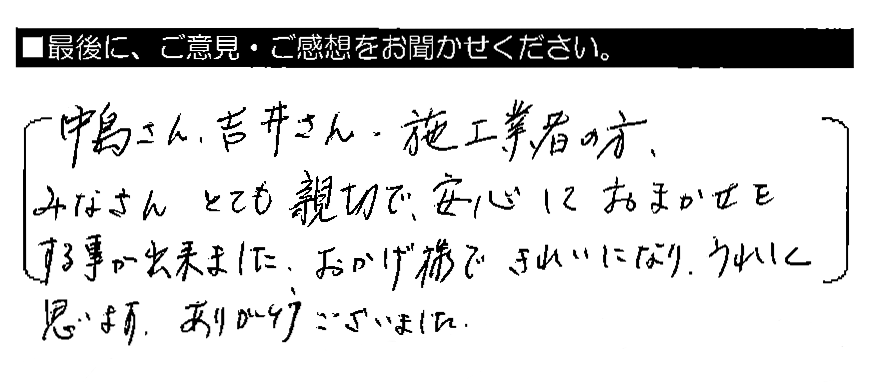 ■最後に、ご意見・ご感想をお聞かせください。
中島さん、吉井さん・施工業者の方、
みなさん とても親切で、安心しておまかせを
する事が出来ました、おかげ様で きれいになり、うれしく
思います、ありがとうございました。